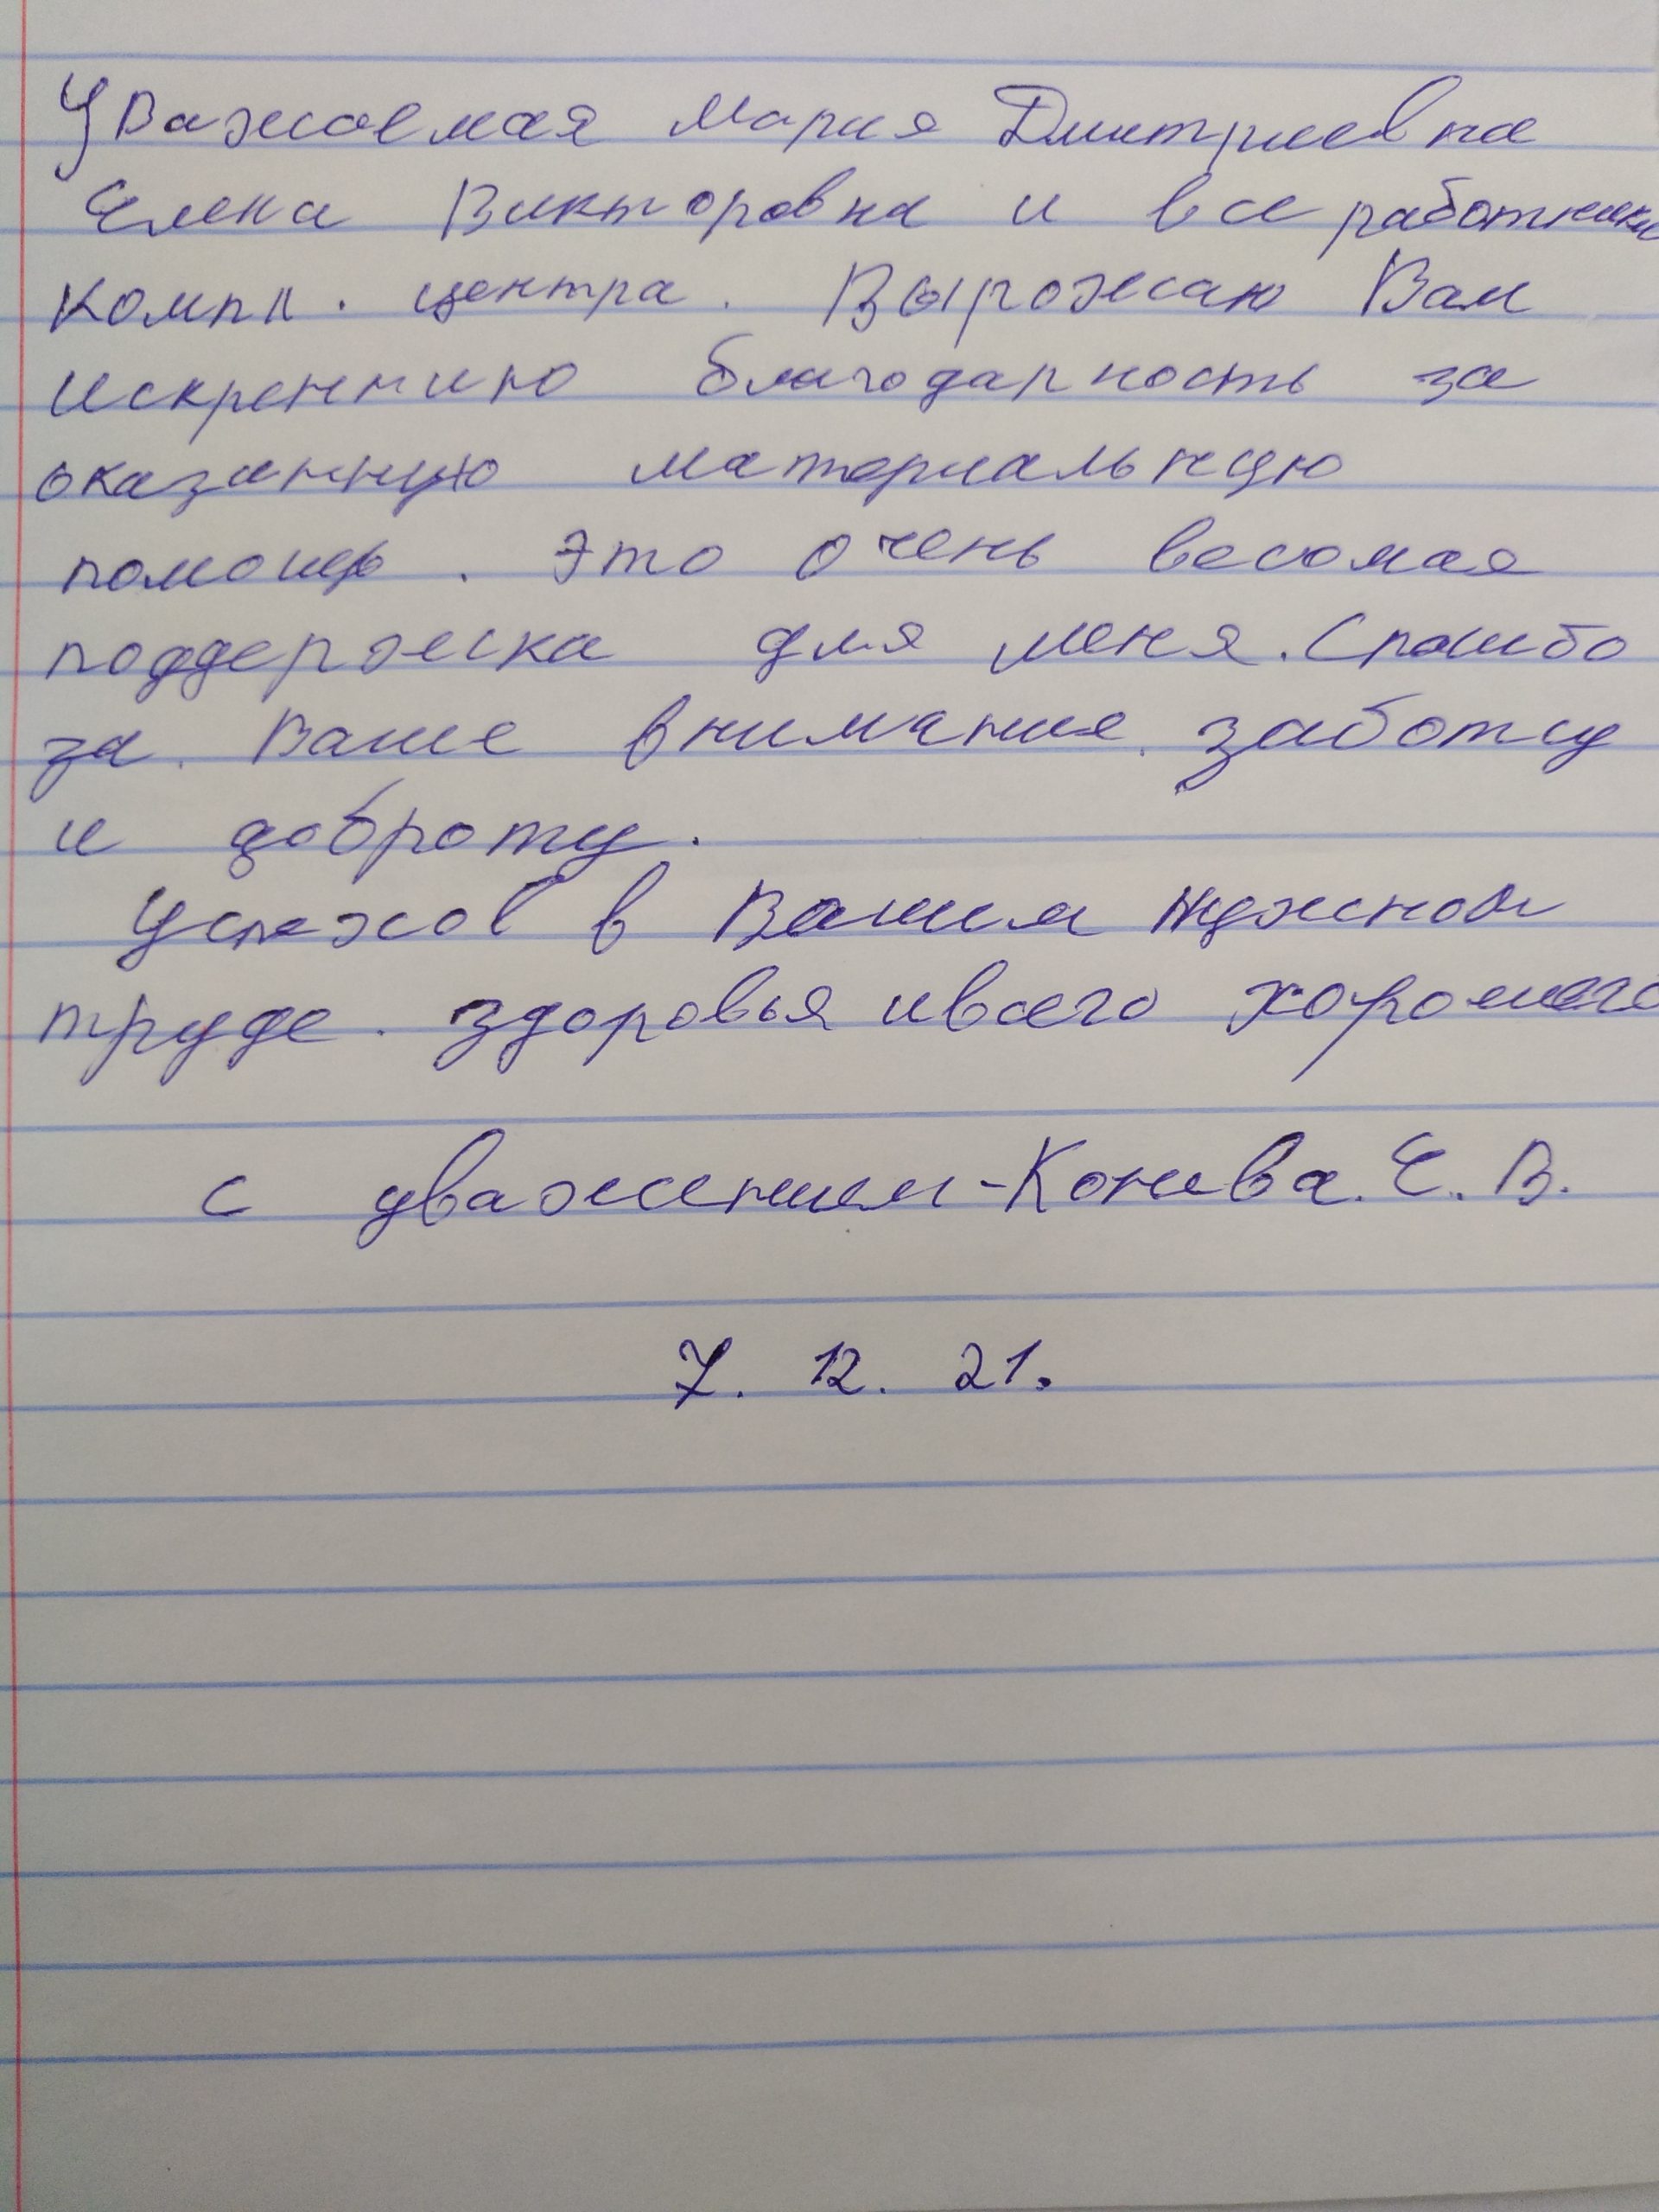 Уважаемая Мария Дмитриевна
Елена Викторовна и все работники
компл. центра. Вырожаю Вам
искреннию благодарность за
оказанную материальную
помощь. Это очень весомая
поддержка для меня. Спасибо
за Ваше внимание. заботу
и доброту.
Успехов в Вашем нужном
труде. здоровья и всего хорошего
с уважением-Конева. Е. В.
7. 12. 21.